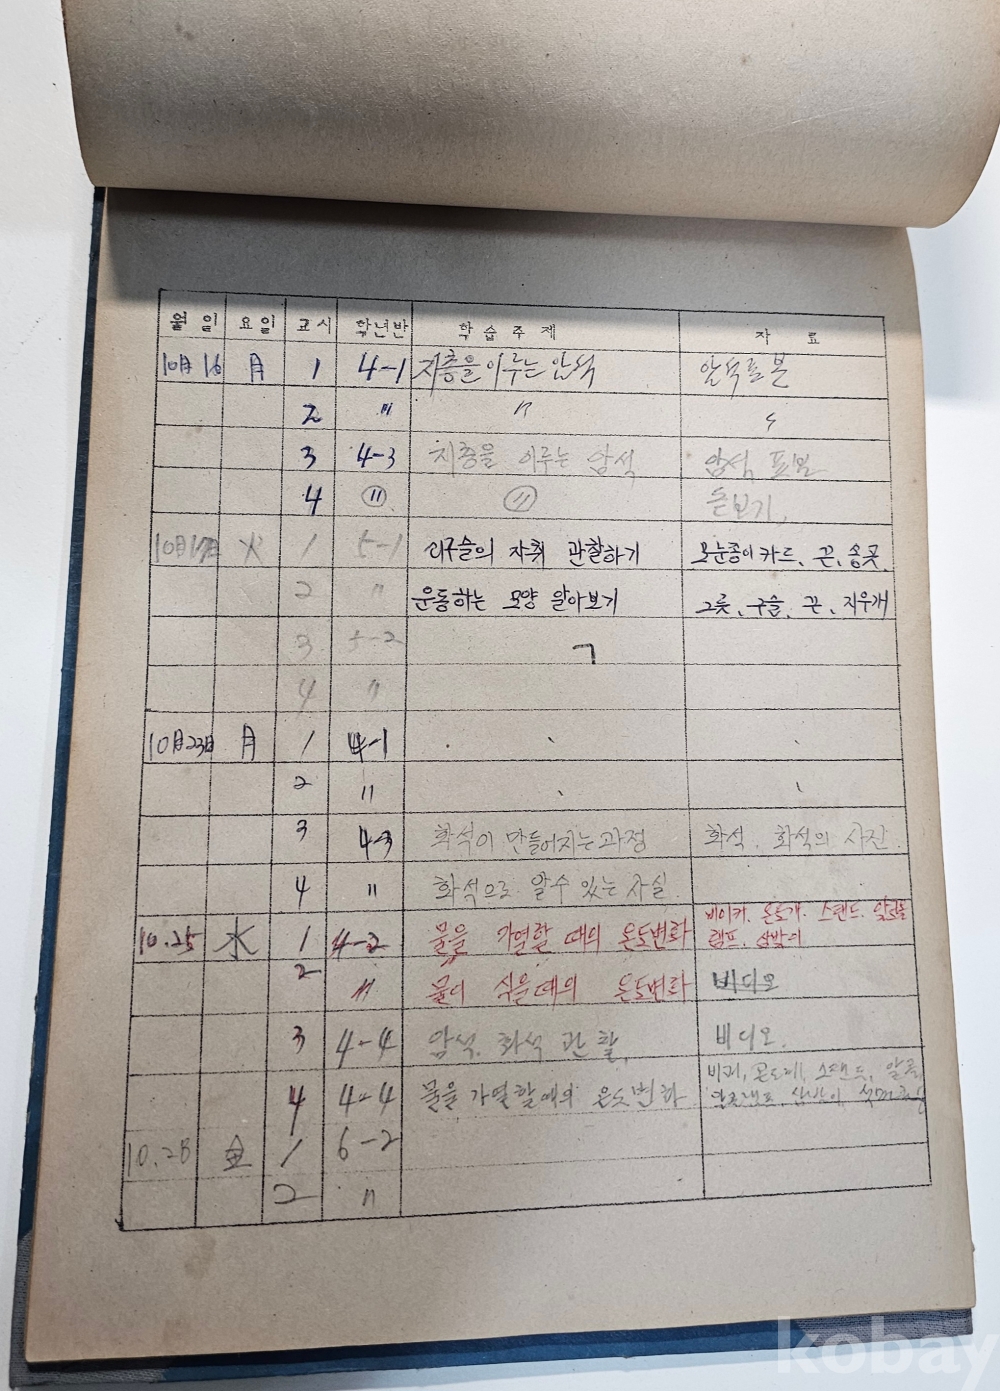 월 일 요일 교시 학년반 학습주제 자 료
10月 16 月 1 4-1 지층을 이루는 암석 암석표본
2 〃 〃 〃
3 4-3 지층을 이루는 암석 암석 표본
4 〃 〃 돋보기,
10月17日 火 1 5-1 쇠구슬의 자취 관찰하기 모눈종이카드, 끈, 송곳
2 〃 운동하는 모양 알아보기 그릇, 구슬, 끈, 지우개
3 5-2 ㄱ
4 〃
10月23日 月 1 4-1
2 〃
3 4-3 화석이 만들어지는 과정 화석. 화석의 사진.
4 〃 화석으로 알수 있는 사실.
10.25 水 1 4-2 물을 가열할 때의 온도변화 비이커. 온도계. 스탠드. 알코올 램프. 삼발이
2 〃 물이 식을때의 온도변화 비디오
3 4-4 암석. 화석 관찰. 비디오.
4 4-4 물을 가열할때의 온도변화 스탠드, 알콜램프, 삼발이
10.28 金 1 6-2
2 〃
kobay